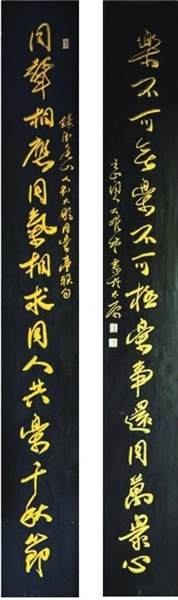 樂不可無樂不可極樂事還同萬衆心
書於太原
同聲相應同氣相求同人共樂千秋節